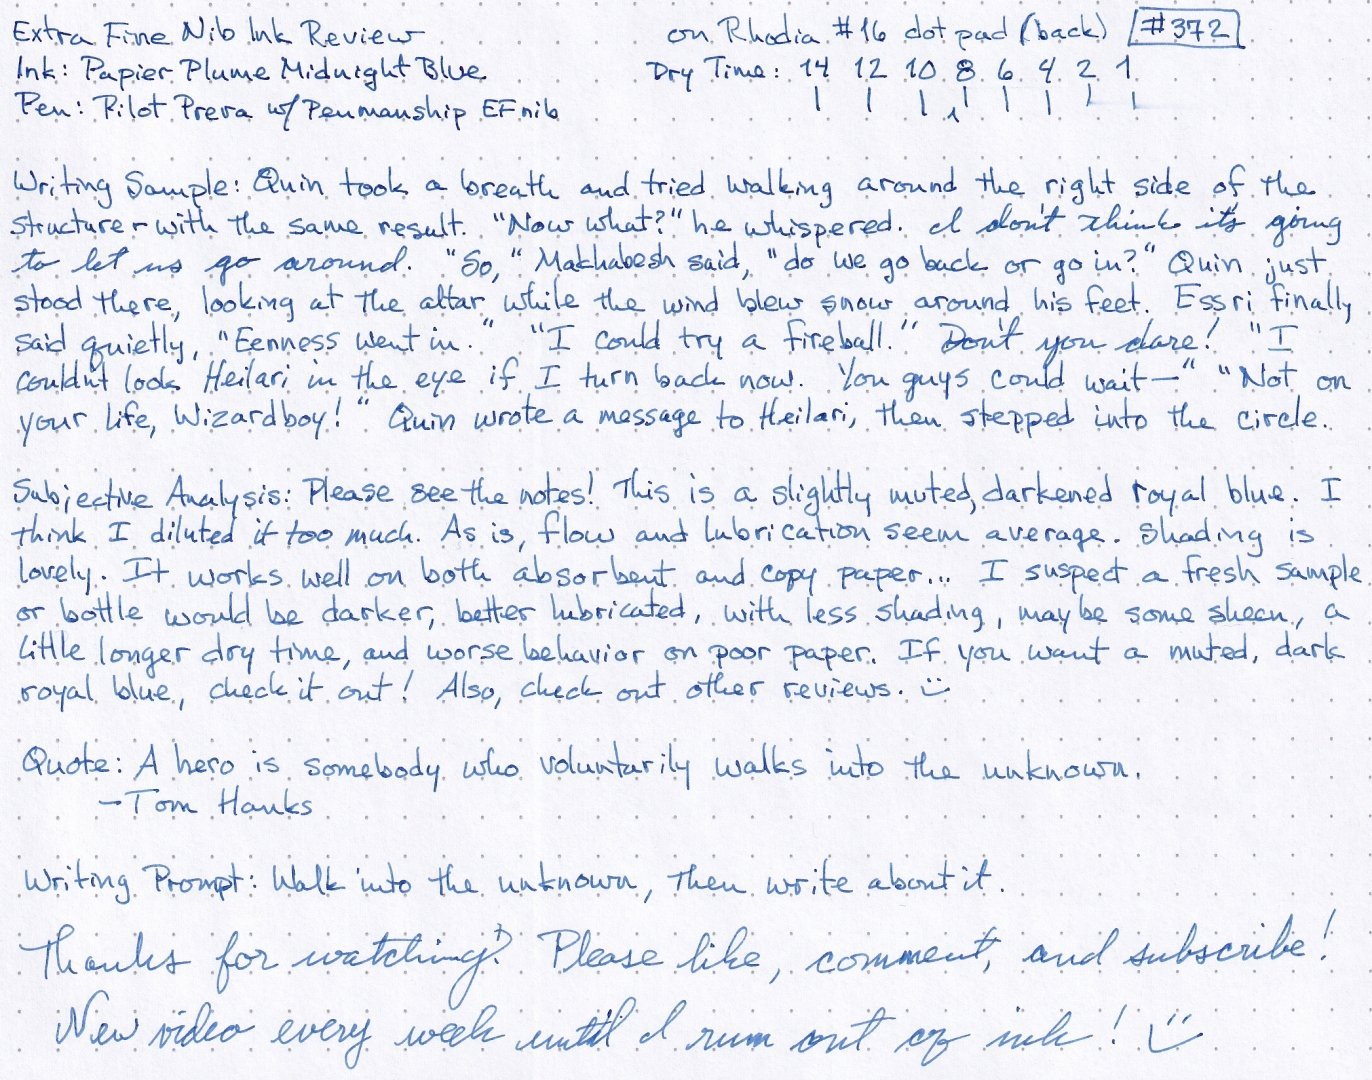 Extra Fine Nib Ink Review
on Rhodia #16 dot pad (back) #372
Ink: Papier Plume Midnight Blue
Dry Time: 14 12 10 8 6 4 2 1
Pen: Pilot Prera w/ Penmanship EF nib
Writing Sample: Quin took a breath and tried walking around the right side of the
structure - with the same result. "Now what?" he whispered. I don't think it's going
to let us go around. "So," Makhabesh said, "do we go back or go in?" Quin just
stood there, looking at the altar while the wind blew snow around his feet. Essri finally
said quietly, "Eenness went in." "I could try a fireball." Don't you dare! "I
couldn't look Heilari in the eye if I turn back now. You guys could wait—" "Not on
your life, Wizardboy!" Quin wrote a message to Heilari, then stepped into the circle.
Subjective Analysis: Please see the notes! This is a slightly muted, darkened royal blue. I
think I diluted it too much. As is, flow and lubrication seem average. Shading is
lovely. It works well on both absorbent and copy paper... I suspect a fresh sample
or bottle would be darker, better lubricated, with less shading, maybe some sheen, a
little longer dry time, and worse behavior on poor paper. If you want a muted, dark
royal blue, check it out! Also, check out other reviews. :)
Quote: A hero is somebody who voluntarily walks into the unknown.
- Tom Hanks
Writing Prompt: Walk into the unknown, then write about it.
Thanks for watching! Please like, comment, and subscribe!
New video every week until I run out of ink! :)